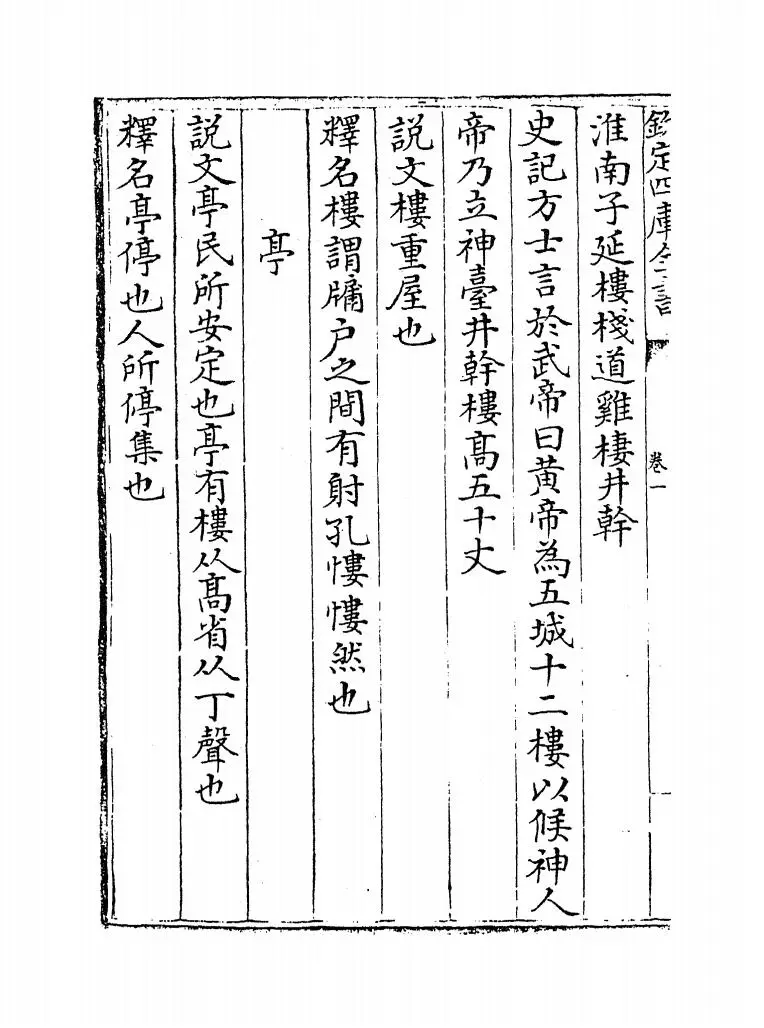 欽定四庫全書
卷一
淮南子延樓棧道雞棲井幹
史記方士言於武帝曰黄帝為五城十二樓以候神人
帝乃立神臺井幹樓髙五十丈
説文樓重屋也
釋名樓謂牖户之間有射孔慺慺然也
亭
説文亭民所安定也亭有樓从髙省从丁聲也
釋名亭停也人所停集也